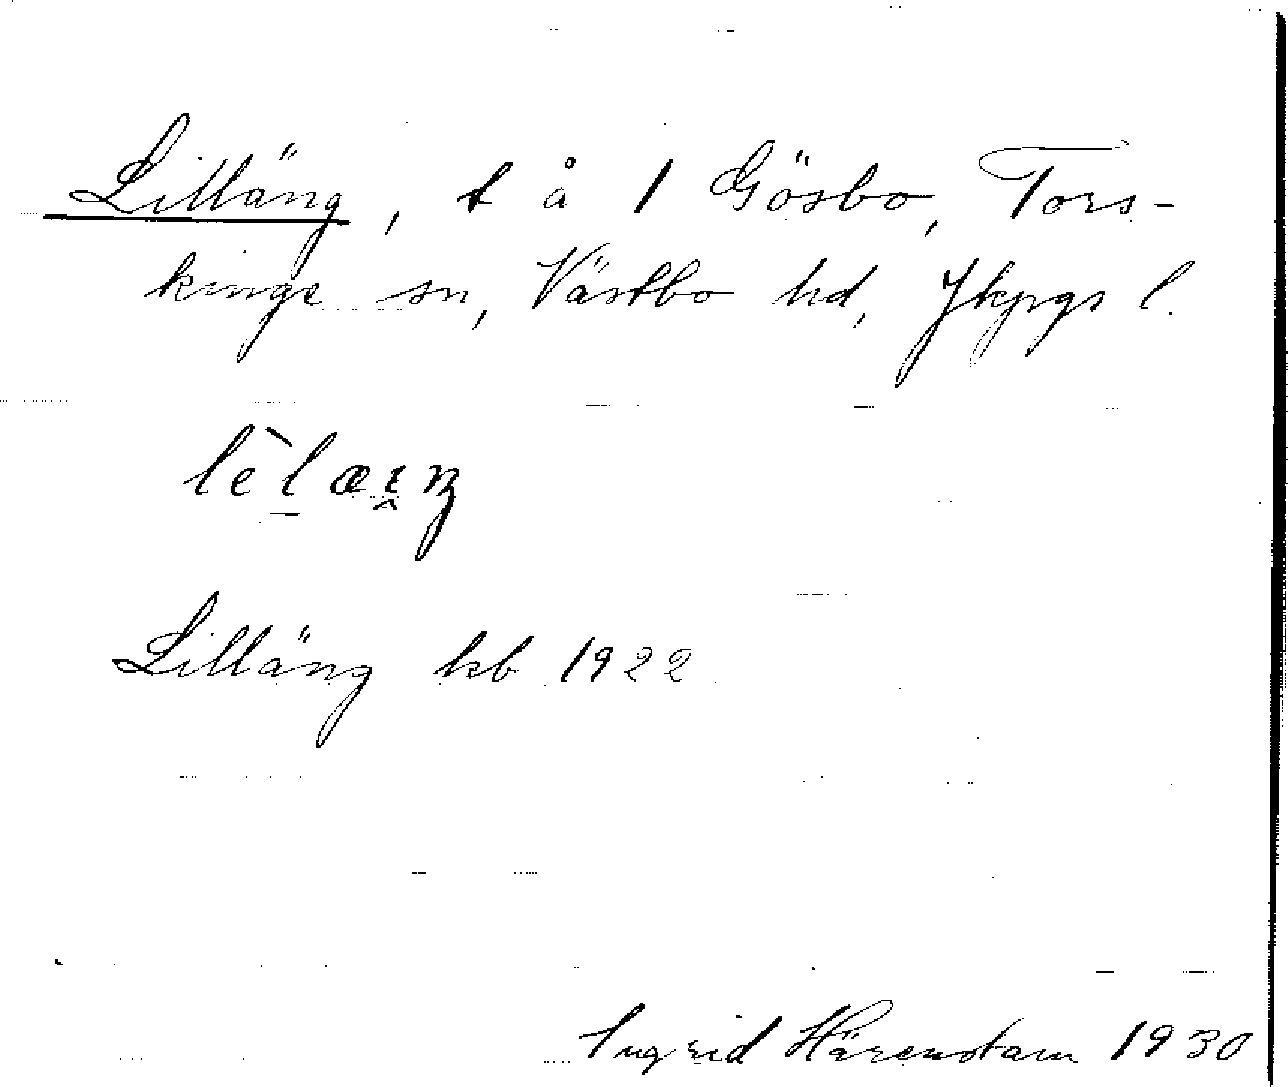 Lilläng, t å 1 Gösbo, Tors-
kinge sn, Västbo hd, Jkpgs l.
Lilläng kb 1922
Ingrid Härenstam 1930